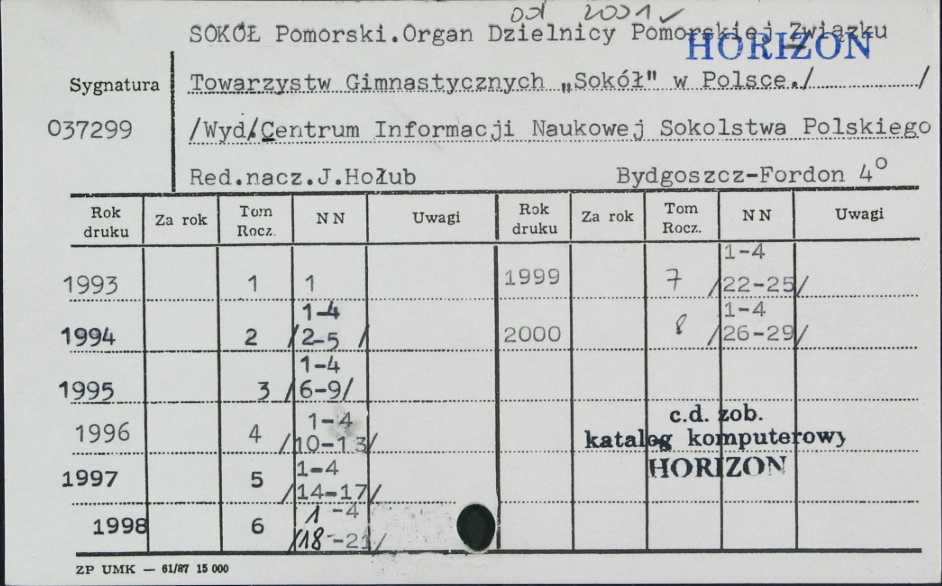 od 2001 ✓
SOKÓŁ Pomorski.Organ Dzielnicy Pomorskiej Związku
HORIZON
Sygnatura
Towarzystw Gimnastycznych „Sokół" w Polsce./ /
037299
/Wyd/.Centrum Informacji Naukowej Sokolstwa Polskiego
Red.nacz.J.Hołub Bydgoszcz-Fordon 4°
Rok druku Za rok Tom Rocz. NN Uwagi Rok druku Za rok Tom Rocz. NN Uwagi
1993 1 1 1999 7 1-4 /22-25/
1994 2 1-4 /2-5 / 2000 8 1-4 /26-29/
1995 3 1-4 /6-9/
1996 4 1-4 /10-13/
c.d. zob.
katalog komputerowy
HORIZON
1997 5 1-4 /14-17/
1998 6 1-4 /18-21/
ZP UMK — 61/87 15 000